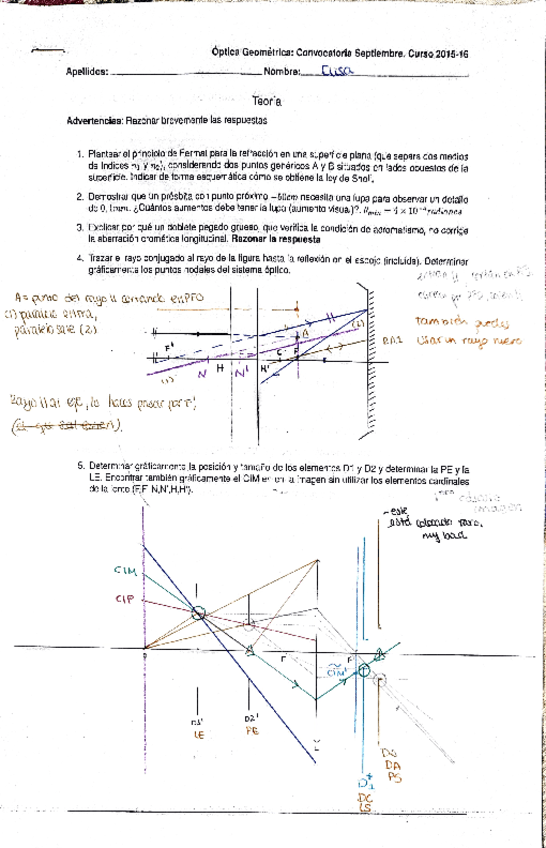 Óptica Geométrica: Convocatoria Septiembre. Curso 2015-16
Apellidos: Nombre: Luisa
Teoría
Advertencias: Razonar brevemente las respuestas
1. Plantear el principio de Fermat para la refracción en una superficie plana (que separa dos medios
de índices n1 y n2), considerando dos puntos genéricos A y B situados en lados opuestos de la
superficie. Indicar de forma esquemática cómo se obtiene la ley de Snell.
2. Demostrar que un présbita con punto próximo −50cm necesita una lupa para observar un detalle
de 0,1mm. ¿Cuántos aumentos debe tener la lupa (aumento visual)?.
3. Explicar por qué un doblete pegado grueso, que verifica la condición de acromatismo, no corrige
la aberración cromática longitudinal. Razonar la respuesta
4. Trazar el rayo conjugado al rayo de la figura hasta la reflexión en el espejo (incluida). Determinar
gráficamente los puntos nodales del sistema óptico.
A = punto del rayo
(1) paralelo entra,
paralelo sale (2)
también puedes
usar un rayo nuevo
F'
N
H
N'
H'
F
(1)
(2)
Rayo // al eje, lo haces pasar por F'
5. Determinar gráficamente la posición y tamaño de los elementos D1 y D2 y determinar la PE y la
LE. Encontrar también gráficamente el CIM en la imagen sin utilizar los elementos cardinales
de la lente (F,F',N,N',H,H').
- este
está colocado raro,
my bad
CIM
CIP
F'
F
CIM'
D1'
LE
D2'
PE
L
D1
DC
LS
D2
DA
PS